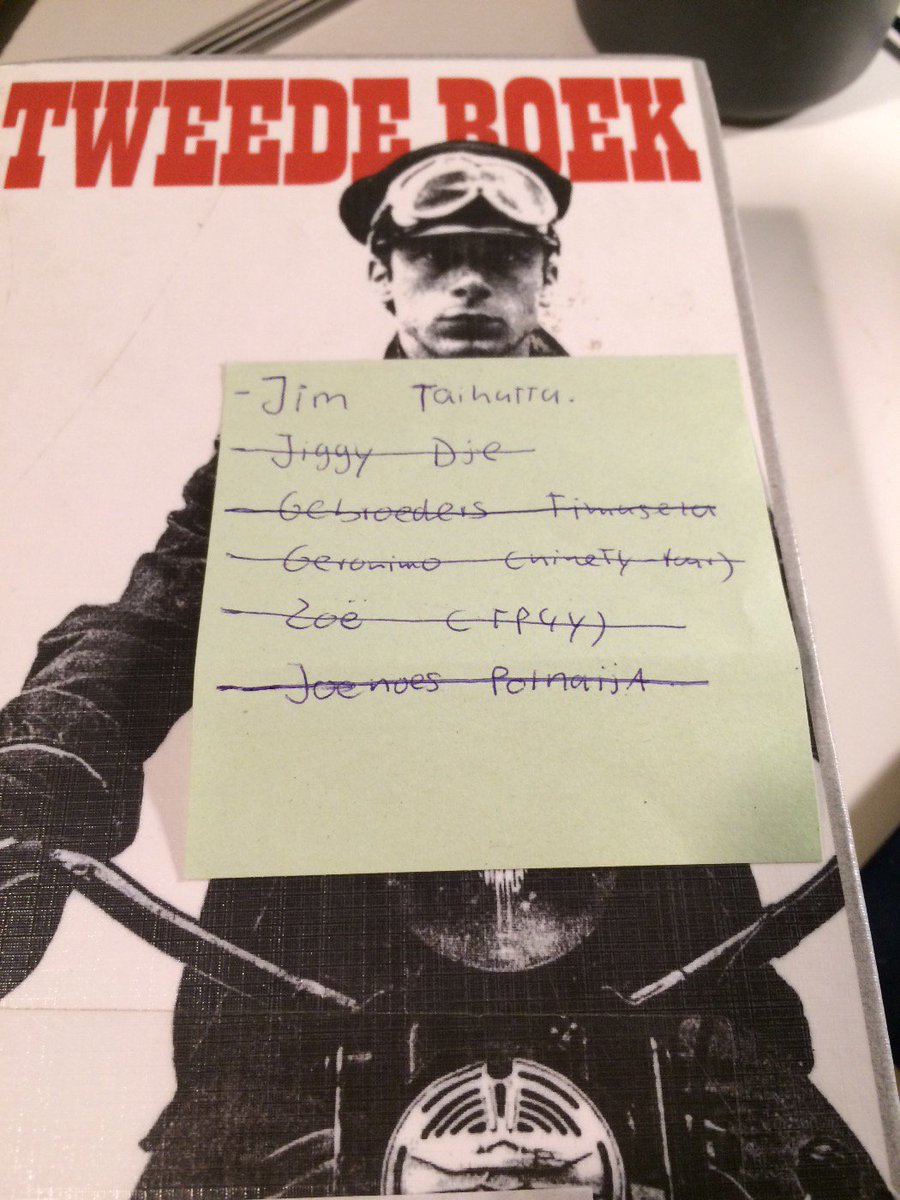 TWEEDE BOEK
- Jim Taihuttu.
- Jiggy Djé
- Gebroeders Timisela
- Geronimo (ninety four)
- Zoë (FPGY)
- Joenoes Polnaija